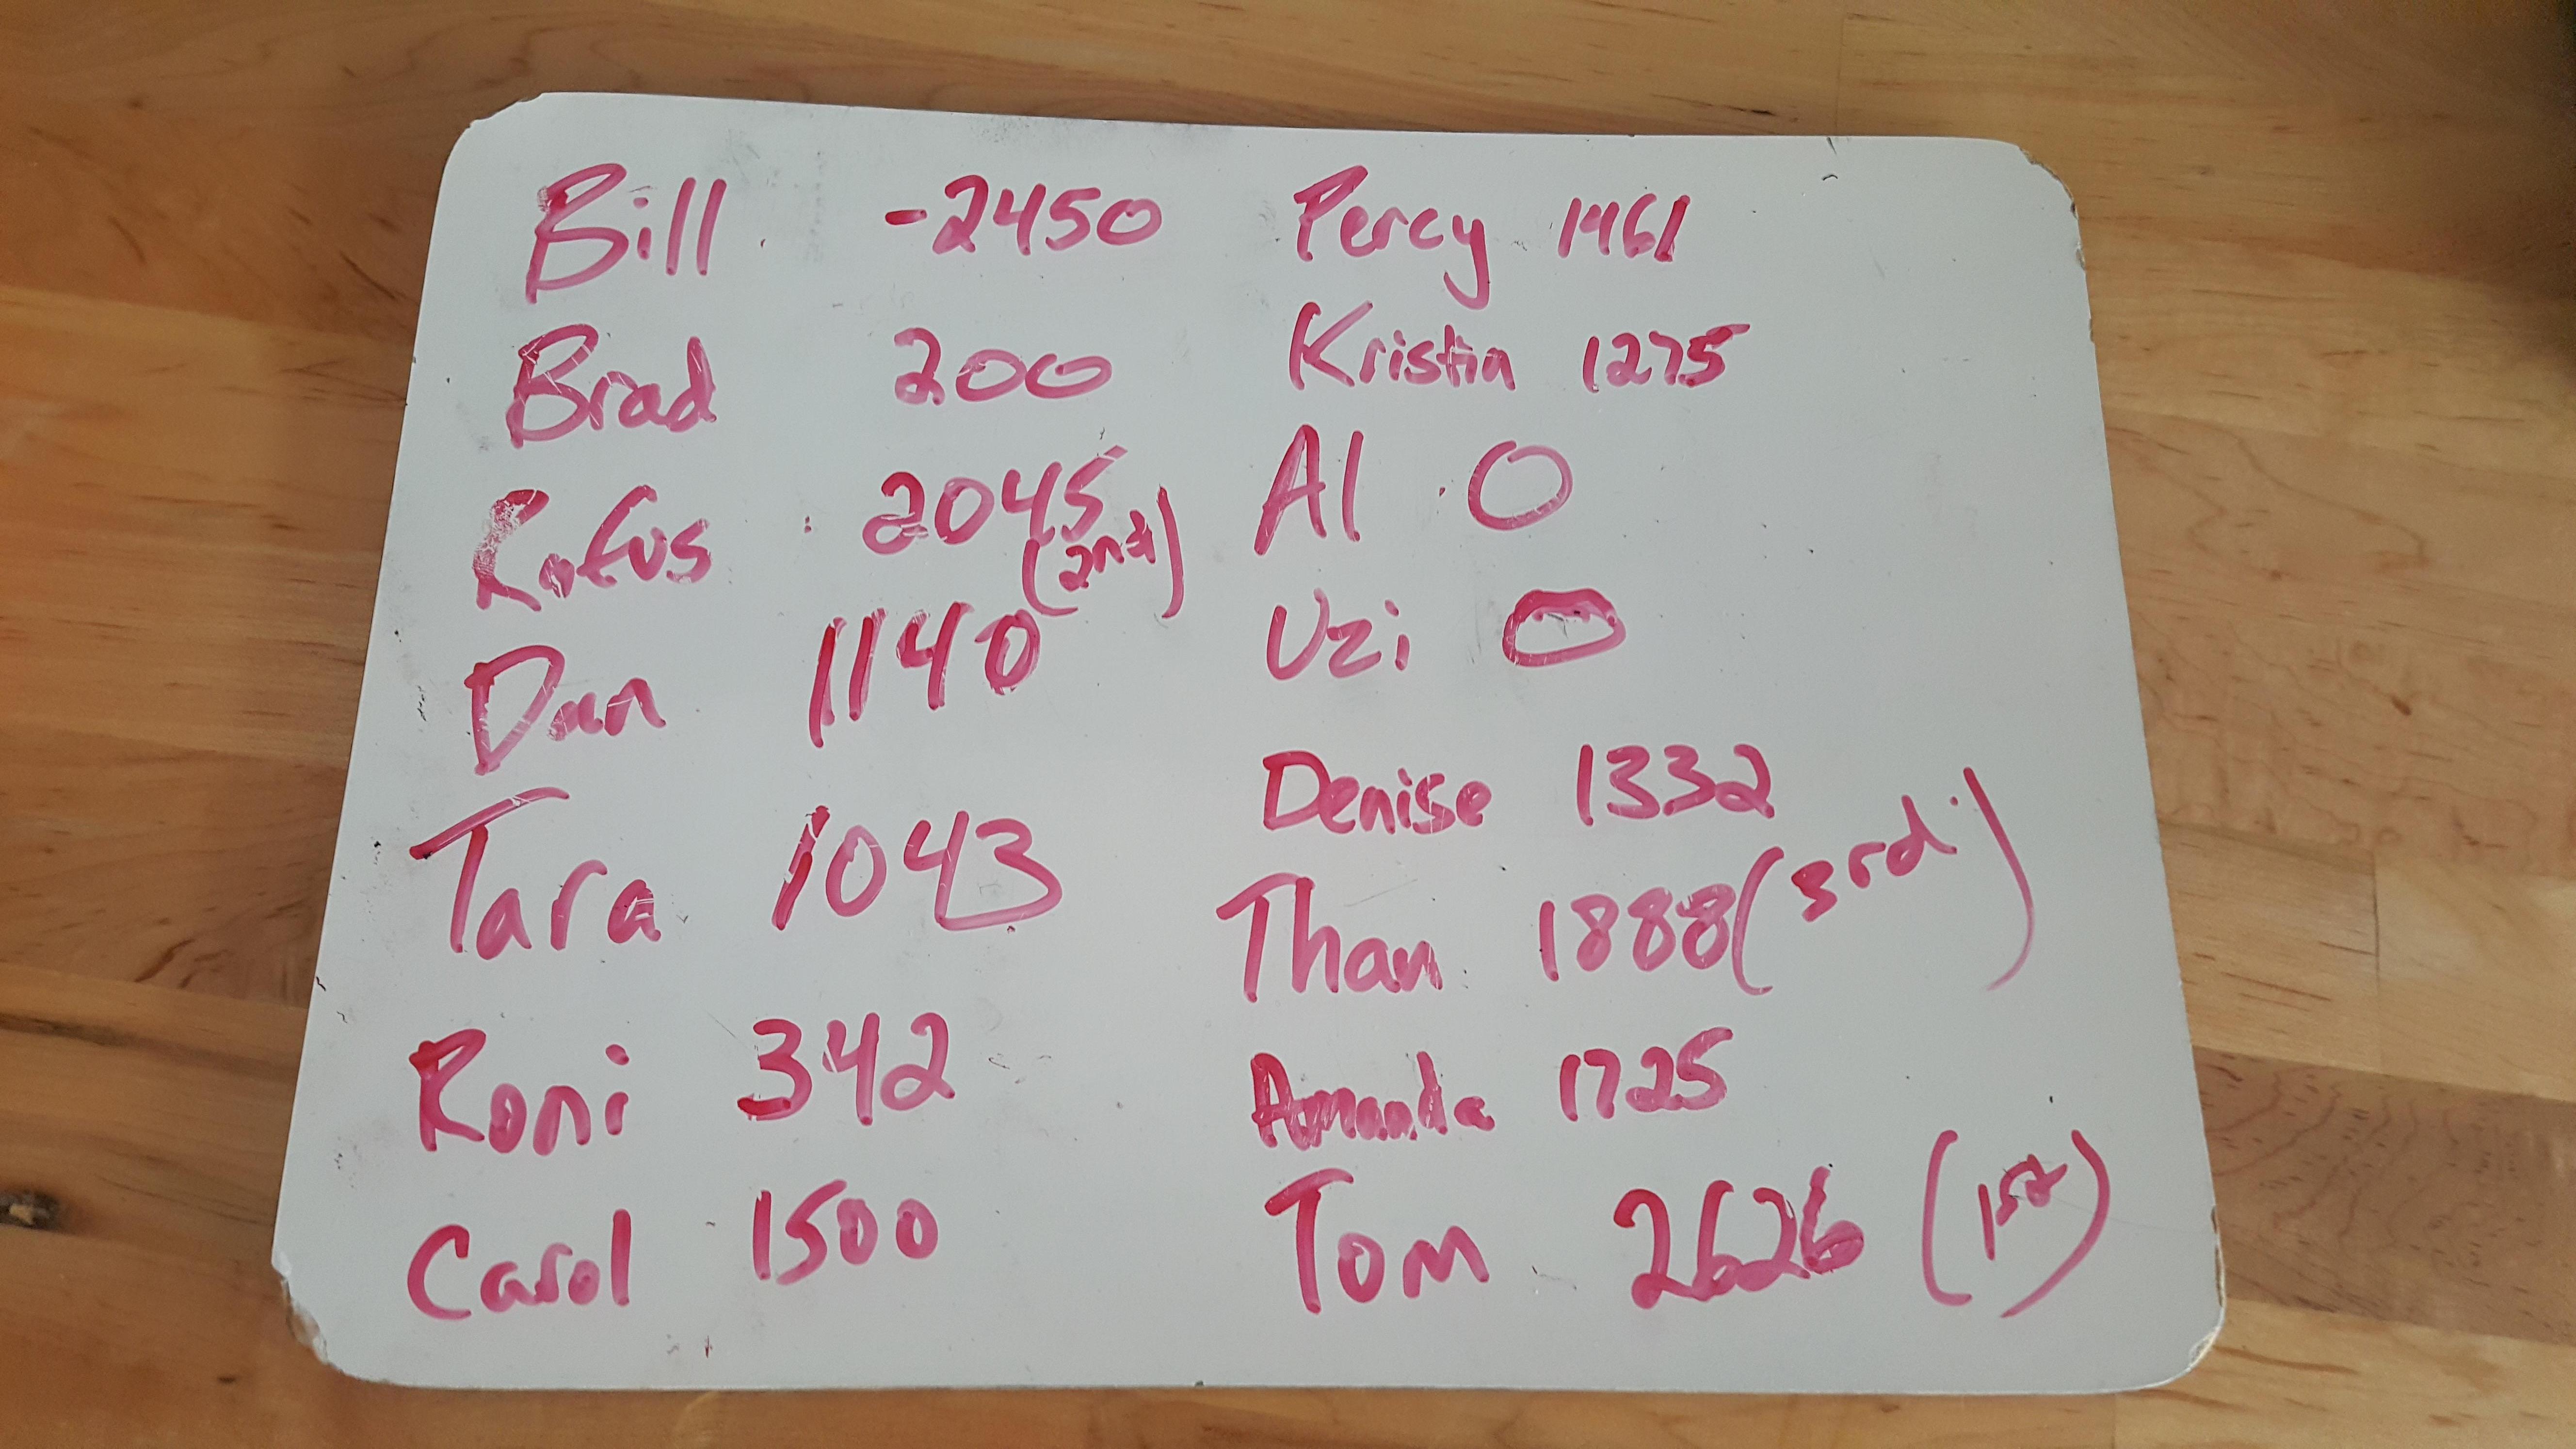 Bill -2450
Brad 200
Rufus 2045
(2nd)
Dan 1140
Tara 1043
Roni 342
Carol 1500
Percy 1461
Kristin 1275
Al 0
Uzi 0
Denise 1332
Than 1888 (3rd)
Amanda 1725
Tom 2626 (1st)